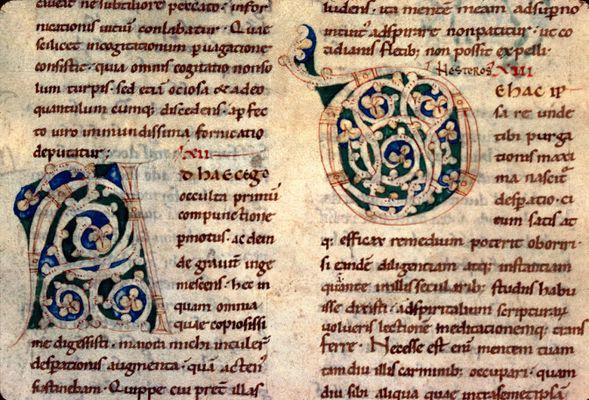 caueat ne subtiliore peccato, infor
nicationis uitiū conlabatur · Quae
scilicet incogitationum puagatione
consistit · quia omnis cogitatio nonso
lum turpis · sed etiā ociosa & adeo
quantulum cumq; discedens · apfec
to uiro inmundissima fornicatio
deputatur; XII
AD HAEC EGO
occulta primū
compunctione
pmotus · ac dein
de grauit̄ inge
mescens · hec in
quam omnia
quae copiosissi
me digessisti · maiorē michi
desperationis augmenta · quā acten'
sustinebam · Quippe cui pret̄ illas
ludens · ita mentem meam adsupno
intuit' adspirare nonpatitur · ut co
tidianis fletib; non possit expelli ·
NESTEROS XIII
DE HAC IP
sa re unde
tibi purga
tionis maxi
ma nascit̄
despatio · ci
tum satis at
q; efficax remedium poterit oboriri ·
si eandē diligentiam atq; instantiam
quā in illis seculariƀ; studiis habu
isse dixisti · adspiritalium scripturarū
volueris lectionē meditationemq; trans
ferre · Necesse est enī mentem tuam
tam diu illis carminiƀ; occupari · quam
diu sibi aliqua quae intra semetipsam